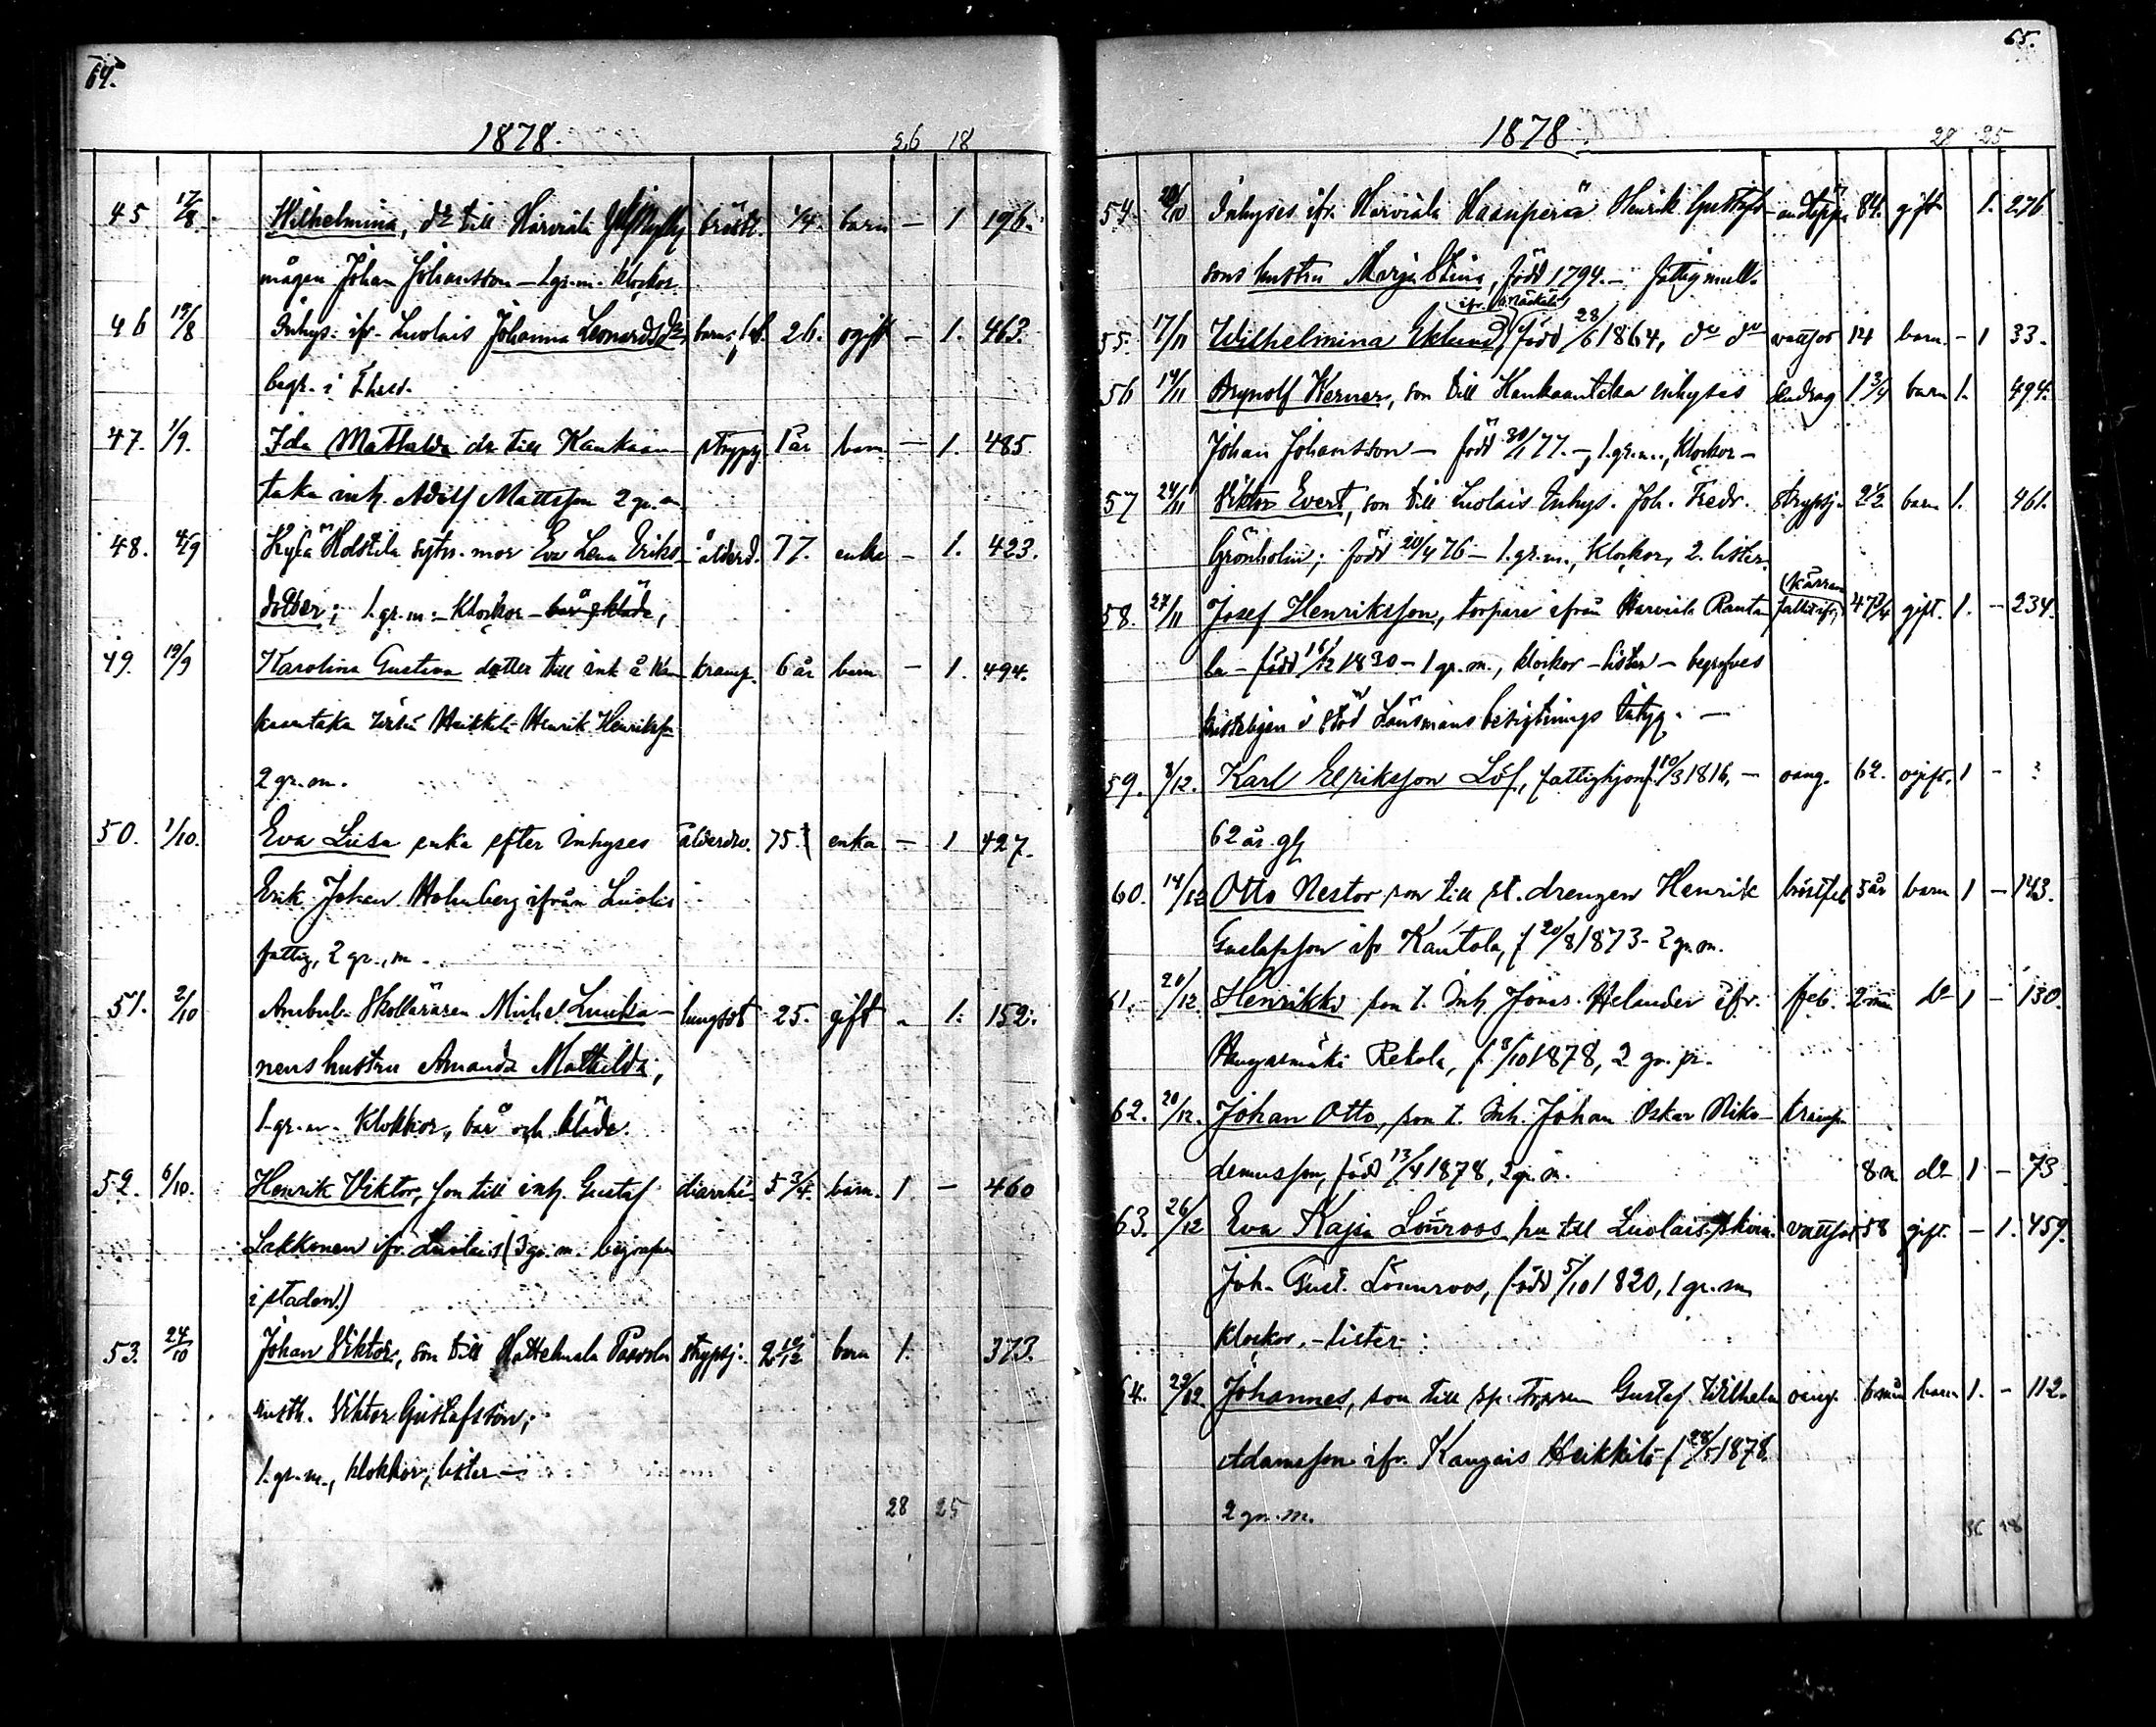 64.
1878. 26 18
45. 17/8. Wilhelmina, dr till Harviala bröstl. 1/4. barn – 1 196.
mågen Johan Johansson – 1 gr. m. klockor.
46 19/8 Inhys. ifr. Luolais Johanna Leonardsdr barns. 26. ogift – 1. 463.
begr. i
47. 1/9. Ida Mathilda dr till Kankaan- strypsj. 1 år barn – 1. 485.
taka inh. Adolf Mattsson 2 gr. m.
48. 4/9 Holstila sytn. mor Eva Lena Eriks- ålderd. 77. enka – 1. 423.
dotter; 1. gr. m. – Klockor – bår & kläde,
49. 19/9 Karolina Gustava dotter till inh å Kan- kramp. 6 år barn – 1. 494.
kaantaka Heikkilä Henrik Henriksson
2 gr. m.
50. 1/10. Eva Lisa enka efter inhyses ålderdw. 75. enka – 1 427.
Erik Johan Holmberg ifrån Luolais
fattig, 2 gr., m –
51. 2/10 Ambul. Skolläraren Michel Luuka- lungsot 25. gift – 1. 152.
nens hustru Amanda Mathilda,
1. gr. m. Klokkor, bår och kläde.
52. 6/10. Henrik Viktor, son till inh. Gustaf diarrhé 5 3/4. barn. 1 – 460
Lakkonen ifr. Luolais (3 gr. m. begrafven
i staden.)
53. 24/10 Johan Viktor, son till Hattelmala Paavola strypsj. 2 10/12 barn 1. 373.
rusth. Viktor Gustafsson;
1. gr. m., klokkor, lister –
28 25
65.
1878. 28 25
54. 20/10 Inhyses ifr. Harviala Haanperä Henrik Gustafs- andtäppa 84. gift 1. 276
sons hustru Marja Stina, född 1794. – fattig mull.
ifr.
55. 17/11 Wilhelmina Eklund, född 28/6 1864, dr dr vattsot 14 barn. – 1 33.
56 14/11 Brynolf Werner, son till Kankaantaka inhyses slendrag 1 3/4 barn 1. 494.
Johan Johansson – född 30/1 77. –, 1. gr. m., Klockor –
57 24/11 Viktor Evert, son till Luolais Inhys. Joh. Fredr. strypsj. 2 1/2 barn 1. 461.
Grönholm; född 20/4 76 – 1. gr. m., Klockor, 2. lister.
58. 27/11 Josef Henriksson, torpare ifrån Harviala Ranta- 47 gift. 1. – 234.
la – född 16/12 1830 – 1 gr. m., klockor – lister – begrafves
kristeligen i stöd Länsmans besigtnings intyg. –
59. 8/12. Karl Eriksson Löf, fattighjon f. 10/3 1816, – oang. 62. ogift. 1 – ?
62 år gl
60. 14/12 Otto Nestor son till st. drengen Henrik bröstfeb 5 år barn 1 – 143.
Gustafsson ifr Kantola, f 20/8 1873 – 2 gr. m.
61. 20/12. Henrikki son t. Inh. Jonas Helander ifr. feb. 2 mån do 1 – 130.
Hangasmäki Rekola, f. 8/10 1878, 2 gr. m.
62. 20/12. Johan Otto, son t. Inh. Johan Oskar Niko- kramp
demusson, född 13/4 1878, 2 gr. m. 8 m. do 1 – 73
63. 26/12 Eva Kajsa Lönnroos hu till Luolais skom. vattsot 58 gift. – 1. 459.
Joh. Gust. Lönnroos, född 5/10 1820, 1 gr. m
Klockor, – lister.
64. 29/12. Johannes, son till sp. torparen Gustaf Wilhelm oang. 6 mån barn 1. – 112.
Adamsson ifr. Kangais Heikkilä f 28/5 1878
2 gr. m.